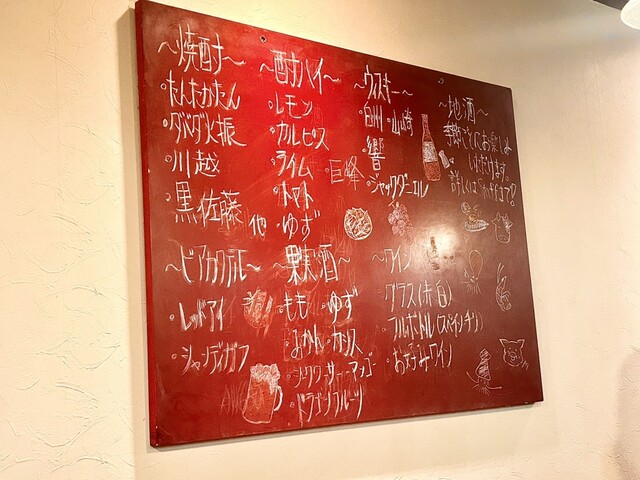 ～焼酎～
・たんたかたん
・ダバダ火振
・川越
・黒佐藤 他
～酎ハイ～
・レモン
・カルピス
・ライム ・巨峰
・トマト
・ゆず
～ウィスキー～
・白州 ・山崎
・響
・ジャックダニエル
～地酒～
季節ごとにお楽しみ
いただけます。
～ビアカクテル～
・レッドアイ
・シャンディガフ
～果実酒～
・もも ・ゆず
・みかん ・カシス
・シークワーサー ・マンゴー
・ドラゴンフルーツ
～ワイン～
・グラス(赤・白)
・フルボトル(スペイン・チリ)